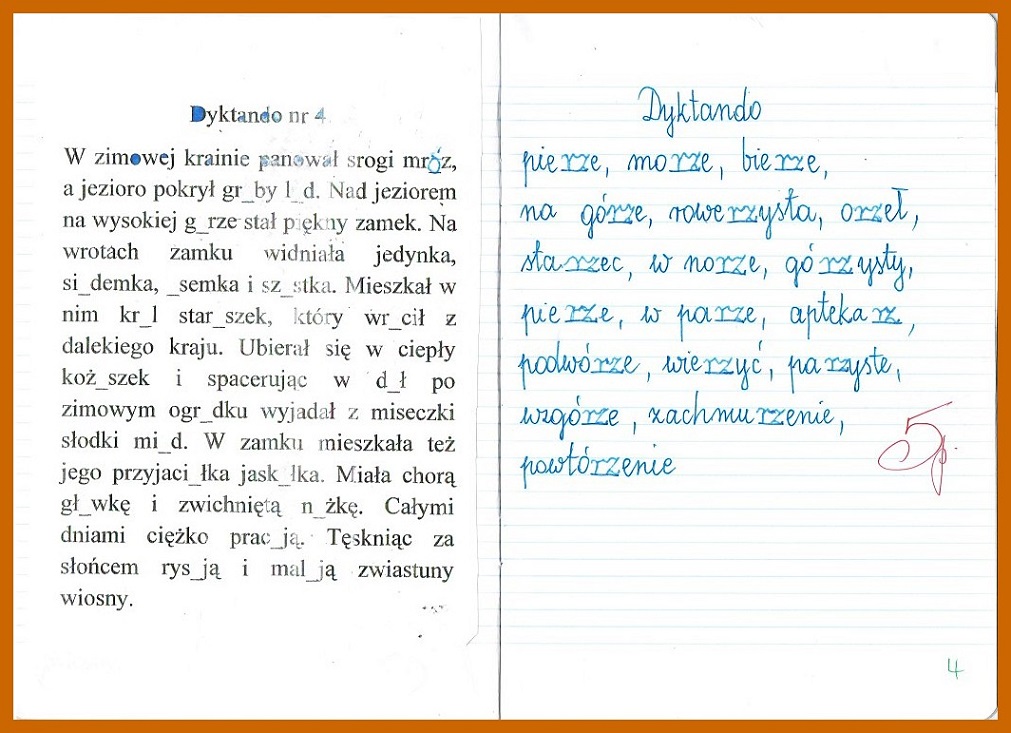 Dyktando nr 4
W zimowej krainie panował srogi mróz,
a jezioro pokrył gr_by l_d. Nad jeziorem
na wysokiej g_rze stał piękny zamek. Na
wrotach zamku widniała jedynka,
si_demka, _semka i sz_stka. Mieszkał w
nim kr_l star_szek, który wr_cił z
dalekiego kraju. Ubierał się w ciepły
koż_szek i spacerując w d_ł po
zimowym ogr_dku wyjadał z miseczki
słodki mi_d. W zamku mieszkała też
jego przyjaci_łka jask_łka. Miała chorą
gł_wkę i zwichniętą n_żkę. Całymi
dniami ciężko prac_ją. Tęskniąc za
słońcem rys_ją i mal_ją zwiastuny
wiosny.
Dyktando
pierze, morze, bierze,
na górze, rowerzysta, orzeł,
starzec, w norze, górzysty,
pierze, w parze, aptekarz,
podwórze, wierzyć, parzyste,
wzgórze, zachmurzenie,
powtórzenie
5p.
4